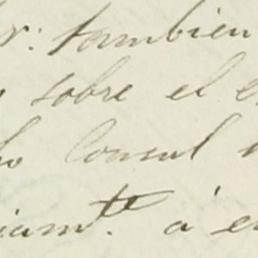 r: tambien
sobre el e
ho Consul
iamte. á e